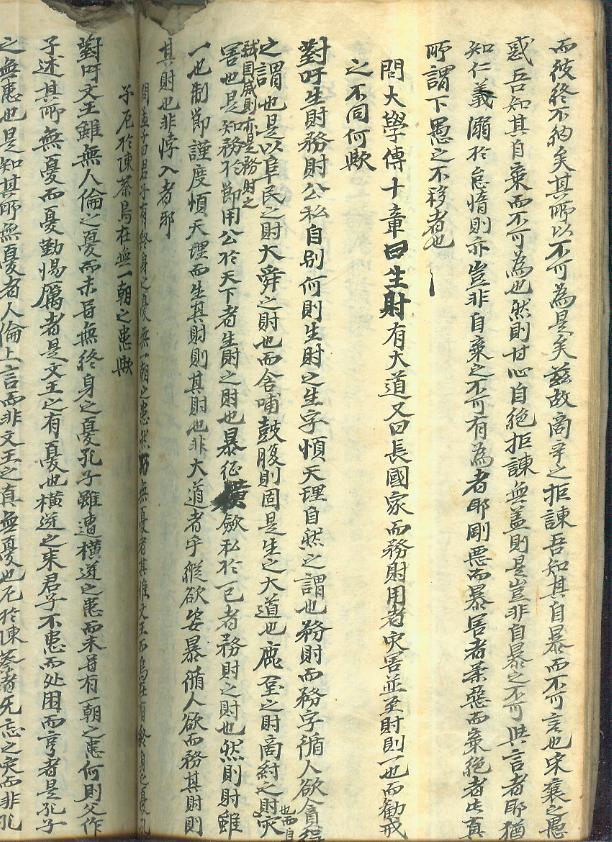 而彼終不約矣其所以不可為是矣玆故商辛之拒諫吾知其自暴而不可言也宋襄之愚
惑吾知其自棄而不可為也然則甘心自絶拒諫無益則是豈非自暴之不可與言者耶猶
知仁義溺於怠惰則亦豈非自棄之不可有為者耶剛惡而暴害者柔惡而棄絶者此真
所謂下愚之不移者也
問大學傳十章曰生財有大道又曰長國家而務財用者灾害並至財則一也而勸戒
之不同何歟
對吁生財務財公私自别何則生財之生字慎天理自然之謂也務財而務字循人欲貪得
之謂也是以阜民之財大舜之財也而含哺鼓腹則固是生之大道也鹿臺之財商紂之財灾
也而自
誠国威則亦是務財之
害也是知務於節用公於天下者生財之財也暴征橫歛私於一己者務財之財也然則財雖
一也制節謹度慎天理而生其財則其財也非大道者乎縱欲妄暴循人欲而務其財則
其財也非悖入者耶
問孟子曰君子有終身之憂無一朝之患然則無憂者其惟文王而烏在有終身之憂孔
子戹於陳蔡烏在無一朝之患歟
對吁文王雖無人倫之憂而未甞無終身之憂孔子雖遭橫逆之患而未甞有一朝之患何則父作
子述其所無憂而憂勤惕厲者是文王之有憂也橫逆之来君子不患而处困而亨者是孔子
之無患也是知其所無憂者人倫上言而非文王之真無憂也戹於陳蔡者无忘之灾而非孔